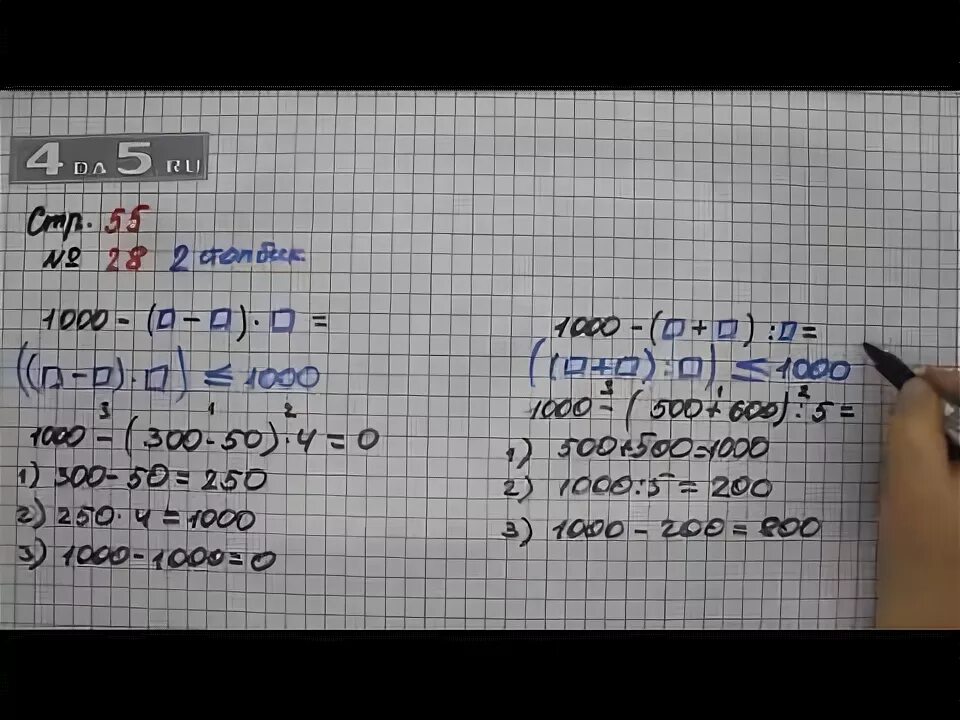 4 DA 5 RU
Стр. 55
№ 28 2 столбик.
1000 - (□ - □) · □ =
((□ - □) · □) ≤ 1000
3 1 2
1000 - (300 - 50) · 4 = 0
1) 300 - 50 = 250
2) 250 · 4 = 1000
3) 1000 - 1000 = 0
1000 - (□ + □) : □ =
((□ + □) : □) ≤ 1000
3 1 2
1000 - (500 + 600) : 5 =
1) 500 + 500 = 1000
2) 1000 : 5 = 200
3) 1000 - 200 = 800